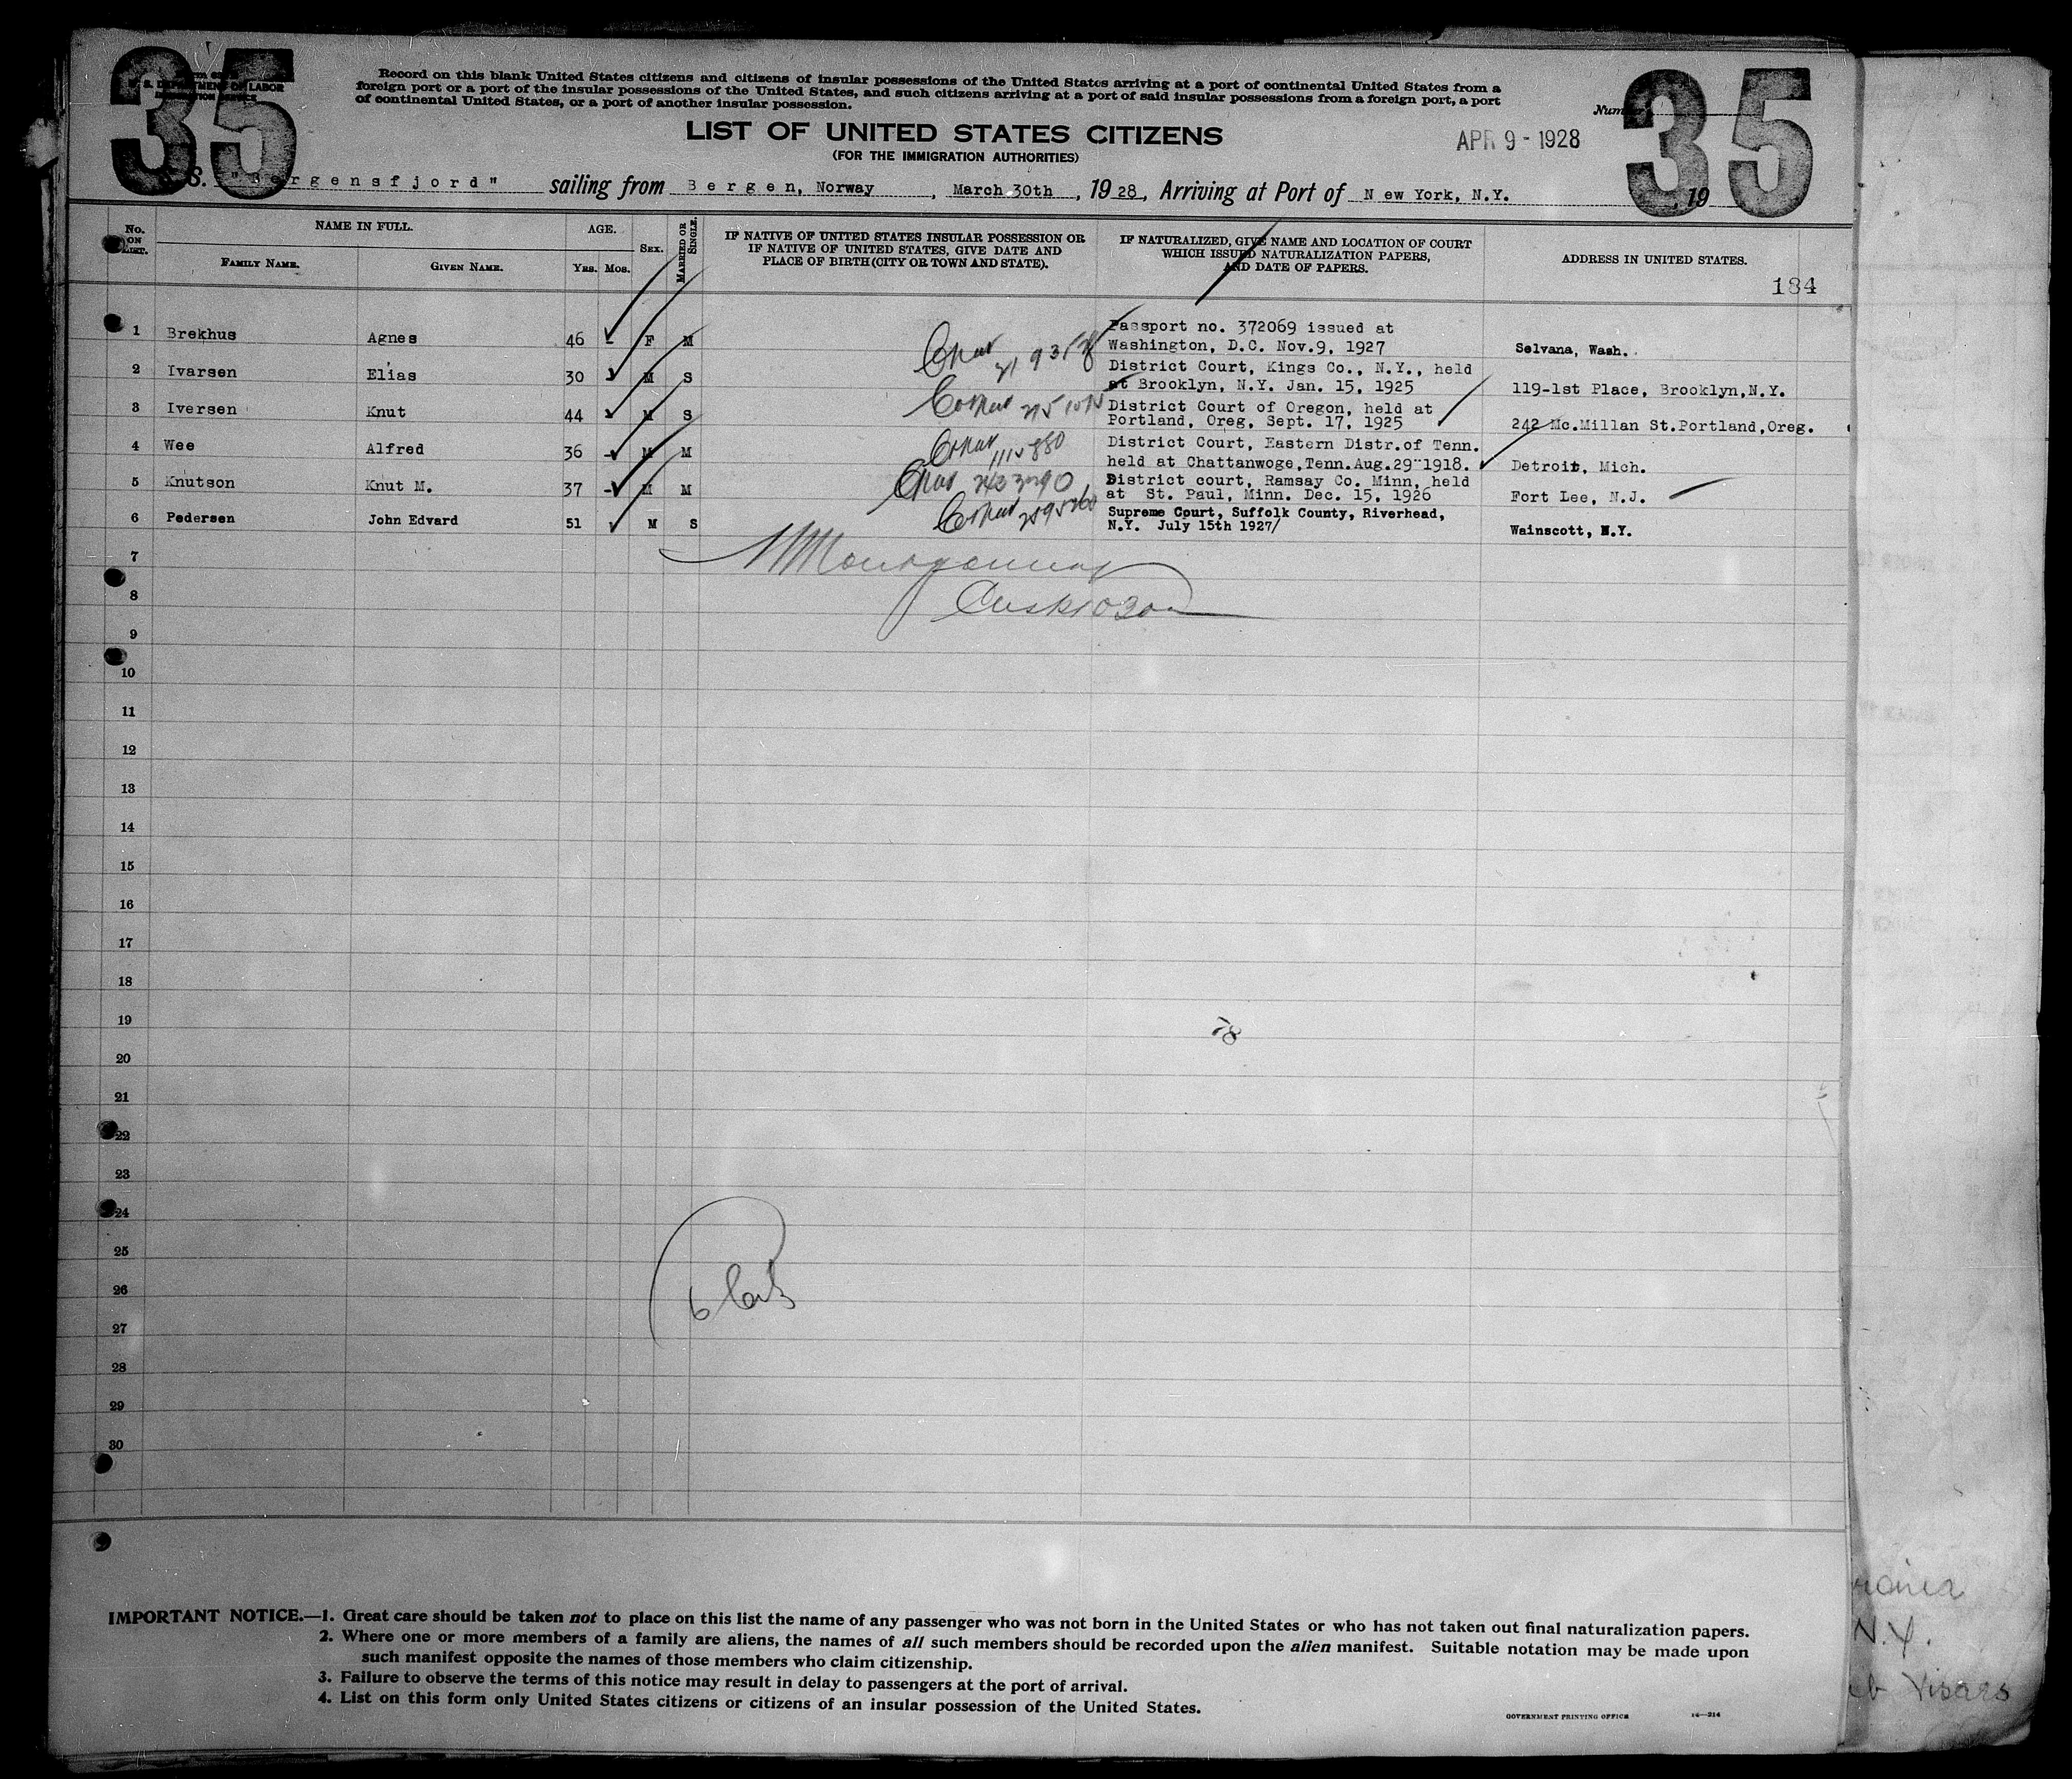 35
35
U. S. DEPARTMENT OF LABOR
IMMIGRATION SERVICE
Record on this blank United States citizens and citizens of insular possessions of the United States arriving at a port of continental United States from a
foreign port or a port of the insular possessions of the United States, and such citizens arriving at a port of said insular possessions from a foreign port, a port
of continental United States, or a port of another insular possession.
LIST OF UNITED STATES CITIZENS
(FOR THE IMMIGRATION AUTHORITIES)
APR 9 - 1928
S. "Bergensfjord" sailing from Bergen, Norway, March 30th, 1928, Arriving at Port of New York, N.Y. , 19
No. ON LIST.
NAME IN FULL.
FAMILY NAME.
GIVEN NAME.
AGE.
YRS. MOS.
SEX.
MARRIED OR SINGLE.
IF NATIVE OF UNITED STATES INSULAR POSSESSION OR
IF NATIVE OF UNITED STATES, GIVE DATE AND
PLACE OF BIRTH (CITY OR TOWN AND STATE).
IF NATURALIZED, GIVE NAME AND LOCATION OF COURT
WHICH ISSUED NATURALIZATION PAPERS,
AND DATE OF PAPERS.
ADDRESS IN UNITED STATES.
184
1 Brekhus Agnes 46 - F M Passport no. 372069 issued at
Washington, D.C. Nov.9, 1927 Selvana, Wash.
2 Ivarsen Elias 30 M S District Court, Kings Co., N.Y., held
at Brooklyn, N.Y. Jan. 15, 1925 119-1st Place, Brooklyn,N.Y.
3 Iversen Knut 44 M S District Court of Oregon, held at
Portland, Oreg, Sept. 17, 1925 242 Mc.Millan St.Portland,Oreg.
4 Wee Alfred 36 - M M District Court, Eastern Distr.of Tenn.
held at Chattanwoge,Tenn.Aug.29"1918. Detroit, Mich.
5 Knutson Knut M. 37 - M M District court, Ramsay Co. Minn, held
at St. Paul, Minn. Dec. 15, 1926 Fort Lee, N.J.
6 Pedersen John Edvard 51 M S Supreme Court, Suffolk County, Riverhead,
N.Y. July 15th 1927/ Wainscott, N.Y.
7
8
9
10
11
12
13
14
15
16
17
18
19
78
20
21
22
23
24
25
26
6
27
28
29
30
IMPORTANT NOTICE.—1. Great care should be taken not to place on this list the name of any passenger who was not born in the United States or who has not taken out final naturalization papers.
2. Where one or more members of a family are aliens, the names of all such members should be recorded upon the alien manifest. Suitable notation may be made upon
such manifest opposite the names of those members who claim citizenship.
3. Failure to observe the terms of this notice may result in delay to passengers at the port of arrival.
4. List on this form only United States citizens or citizens of an insular possession of the United States.
GOVERNMENT PRINTING OFFICE 14—214
N.Y.